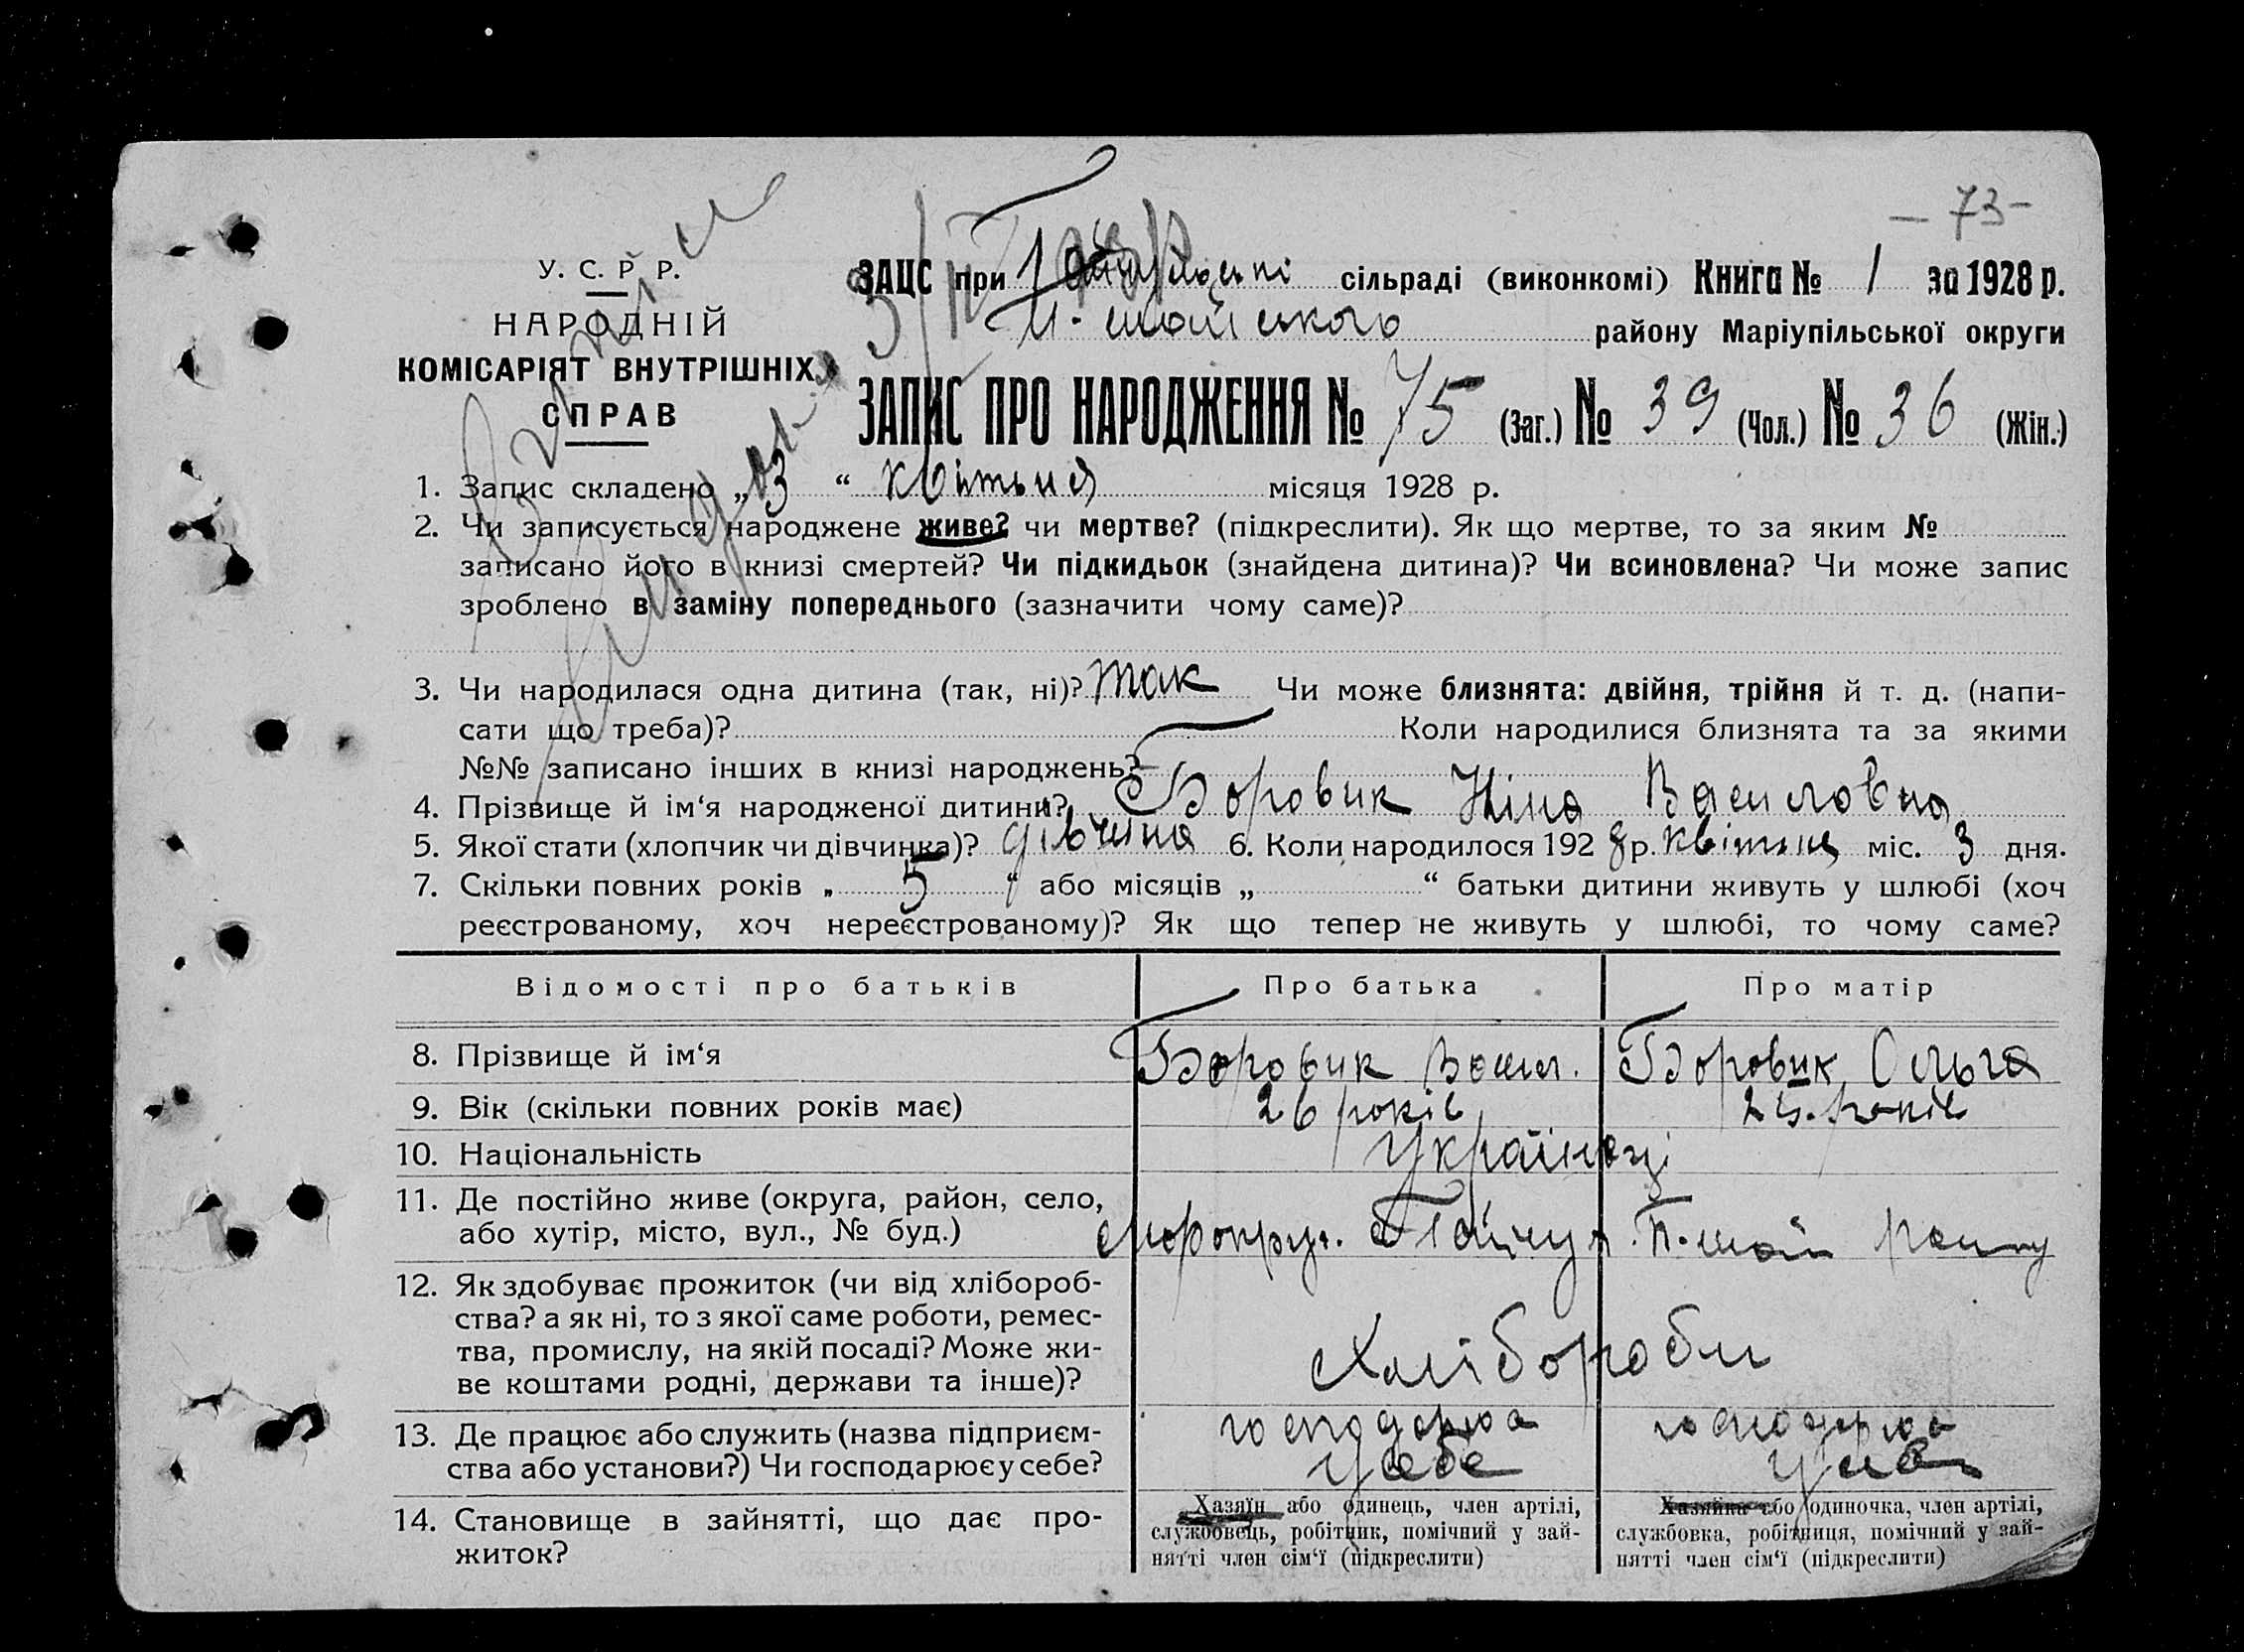 – 73 –
У. С. Р. Р.
НАРОДНІЙ
КОМІСАРІЯТ ВНУТРІШНІХ
СПРАВ
ЗАЦС при сільраді (виконкомі) Книга № 1 за 1928 р.
району Маріупільської округи
ЗАПИС ПРО НАРОДЖЕННЯ № 75 (Заг.) № 39 (Чол.) № 36 (Жін.)
1. Запис складено „ 3 “ квітня місяця 1928 р.
2. Чи записується народжене живе? чи мертве? (підкреслити). Як що мертве, то за яким №
записано його в книзі смертей? Чи підкидьок (знайдена дитина)? Чи всиновлена? Чи може запис
зроблено в заміну попереднього (зазначити чому саме)?
3. Чи народилася одна дитина (так, ні)? так Чи може близнята: двійня, трійня й т. д. (напи-
сати що треба)? Коли народилися близнята та за якими
№№ записано інших в книзі народжень?
4. Прізвище й ім‘я народженої дитини? Боровик Ніна Василовна
5. Якої стати (хлопчик чи дівчинка)? дівчина 6. Коли народилося 192 8 р. квітня міс. 3 дня.
7. Скільки повних років „ 5 “ або місяців „ “ батьки дитини живуть у шлюбі (хоч
реєстрованому, хоч нереєстрованому)? Як що тепер не живуть у шлюбі, то чому саме?
Відомості про батьків Про батька Про матір
8. Прізвище й ім‘я Боровик Васил. Боровик Ольга
9. Вік (скільки повних років має) 26 років 25. років
10. Національність Українці
11. Де постійно живе (округа, район, село,
або хутір, місто, вул., № буд.) Маропруг.
12. Як здобуває прожиток (чи від хлібороб-
ства? а як ні, то з якої саме роботи, ремес-
тва, промислу, на якій посаді? Може жи-
ве коштами родні, держави та інше)? Хлібороби
13. Де працює або служить (назва підприєм-
ства або установи?) Чи господарює у себе? господарює у себе господарює у себе
14. Становище в зайнятті, що дає про-
житок?
Хазяїн або одинець, член артілі,
службовець, робітник, помічний у зай-
нятті член сім‘ї (підкреслити)
Хазяйка або одиночка, член артілі,
службовка, робітниця, помічний у зай-
нятті член сім‘ї (підкреслити)